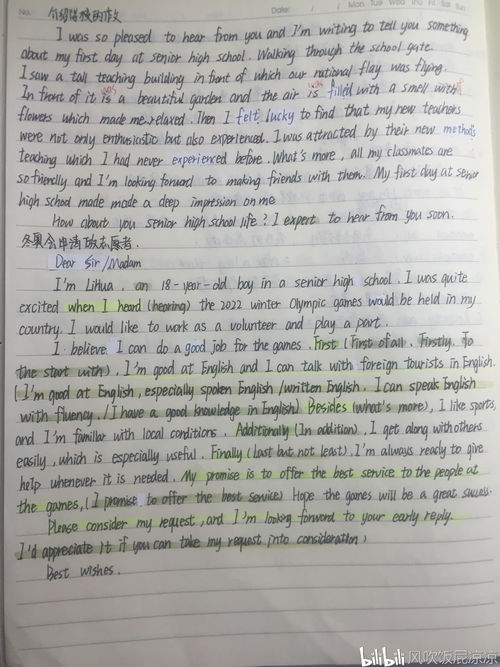 No.
Date: / /
Mon Tue Wed Thu Fri Sat Sun
介绍学校的作文
I was so pleased to hear from you and I'm writing to tell you something
about my first day at senior high school. Walking through the school gate.
I saw a tall teaching building in front of which our national flay was flying.
In front of it is was a beautiful garden and the air is was filled with a smell with of
flowers which made me relaxed. Then I felt lucky to find that my new teachers
were not only enthusiastic but also experienced. I was attracted by their new methods
teaching which I had never experienced before. What's more, all my classmates are
so friendly and I'm looking forward to making friends with them. My first day at senior
high school made made a deep impression on me
How about you senior high school life? I expert to hear from you soon.
冬奥会申请做志愿者.
Dear Sir/Madam
I'm Lihua, an 18-year-old boy in a senior high school. I was quite
excited when I heard (hearing) the 2022 winter Olympic games would be held in my
country. I would like to work as a volunteer and play a part.
I believe I can do a good job for the games. First (First of all. Firstly. To
the start with). I'm good at English and I can talk with foreign tourists in English.
(I'm good at English, especially spoken English/written English. I can speak English
with fluency. /I have a good knowledge in English) Besides (what's more), I like sports,
and I'm familiar with local conditions. Additionally (In addition). I get along with others
easily, which is especially useful. Finally (Last but not least). I'm always ready to give
help whenever it is needed. My promise is to offer the best service to the people at
the games, (I promise to offer the best service) Hope the games will be a great success.
Please consider my request, and I'm looking forward to your early reply.
I'd appreciate it if you can take my request into consideration)
Best wishes.
bilibili 风吹饭屁凉凉